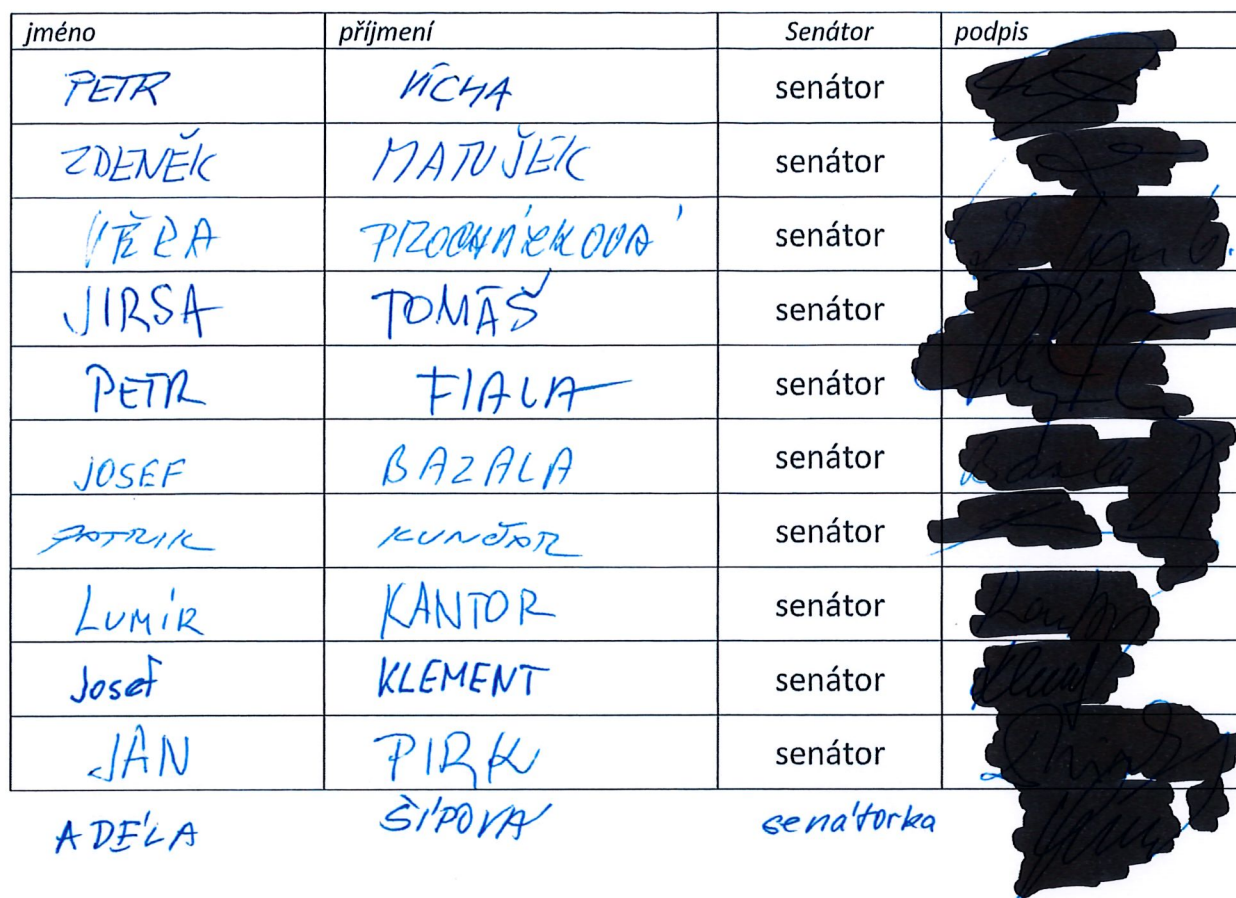 jméno příjmení Senátor podpis
PETR VÍCHA senátor
ZDENĚK MATUŠEK senátor
VĚRA PROCHÁZKOVÁ senátor
JIRSA TOMÁŠ senátor
PETR FIALA senátor
JOSEF BAZALA senátor
PATRIK KUNČAR senátor
LUMÍR KANTOR senátor
Josef KLEMENT senátor
JAN PIRK senátor
ADÉLA ŠÍPOVÁ senátorka